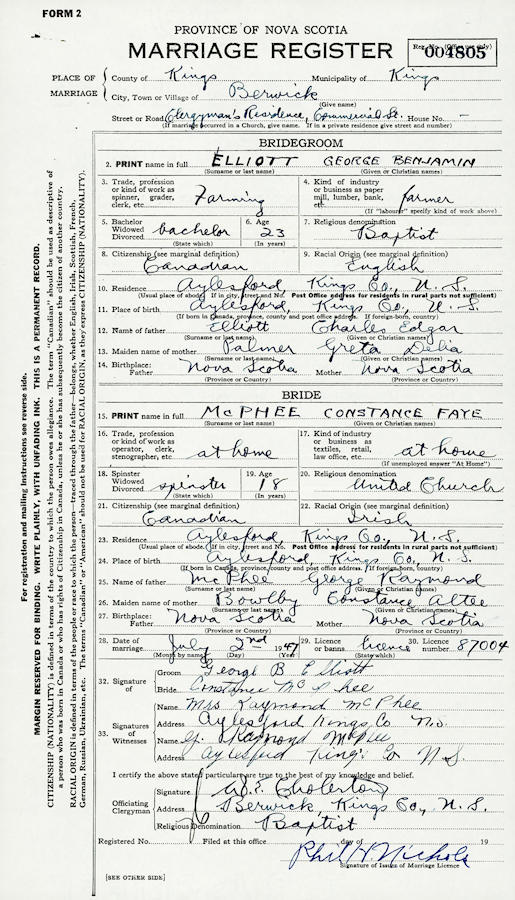 FORM 2
PROVINCE OF NOVA SCOTIA
MARRIAGE REGISTER
Reg. No. (Office use only)
004805
PLACE OF MARRIAGE
County of Kings Municipality of Kings
City, Town or Village of Berwick
(Give name)
Street or Road Clergyman's Residence, Commercial St. House No. -
(If marriage occurred in a Church, give name. If in a private residence give street and number)
BRIDEGROOM
2. PRINT name in full ELLIOTT GEORGE BENJAMIN
(Surname or last name) (Given or Christian names)
3. Trade, profession or kind of work as spinner, grader, clerk, etc. Farming
4. Kind of industry or business as paper mill, lumber, bank, etc. farmer
(If "labourer" specify kind of work above)
5. Bachelor Widowed Divorced bachelor
(State which)
6. Age 23
(In years)
7. Religious denomination Baptist
8. Citizenship (see marginal definition) Canadian
9. Racial Origin (see marginal definition) English
10. Residence Aylesford, Kings Co., N.S.
(Usual place of abode) If in city, street and No. Post Office address for residents in rural parts not sufficient)
11. Place of birth Aylesford, Kings Co., N.S.
(If born in Canada, province, county and post office address. If foreign-born, country)
12. Name of father Elliott Charles Edgar
(Surname or last name) (Given or Christian names)
13. Maiden name of mother Palmer Greta Delia
(Surname or last name) (Given or Christian names)
14. Birthplace: Father Nova Scotia Mother Nova Scotia
(Province or Country) (Province or Country)
BRIDE
15. PRINT name in full McPHEE CONSTANCE FAYE
(Surname or last name) (Given or Christian names)
16. Trade, profession or kind of work as operator, clerk, stenographer, etc at home
17. Kind of industry or business as textiles, retail, law office, etc. at home
(If unemployed answer "At Home")
18. Spinster Widowed Divorced spinster
(State which)
19. Age 18
(In years)
20. Religious denomination United Church
21. Citizenship (see marginal definition) Canadian
22. Racial Origin (see marginal definition) Irish
23. Residence Aylesford, Kings Co., N.S.
(Usual place of abode. If in city, street and No. Post Office address for residents in rural parts not sufficient)
24. Place of birth Aylesford, Kings Co., N.S.
(If born in Canada, province, county and post office address. If foreign-born, country)
25. Name of father McPhee George Raymond
(Surname or last name) (Given or Christian names)
26. Maiden name of mother Bowlby Constance Altee
(Surname or last name) (Given or Christian names)
27. Birthplace: Father Nova Scotia Mother Nova Scotia
(Province or Country) (Province or Country)
28. Date of marriage July 2nd 1947
(Month by name) (Day) (Year)
29. Licence or banns licence
(State which)
30. Licence number 87004
32. Signature of
Groom George B Elliott
Bride Constance McPhee
33. Signatures of Witnesses
Name Mrs Raymond McPhee
Address Aylesford Kings Co N.S.
Name G. Raymond McPhee
Address Aylesford Kings Co N.S.
I certify the above stated particulars are true to the best of my knowledge and belief.
Officiating Clergyman
Signature
Address Berwick, Kings Co., N.S.
Religious Denomination Baptist
Registered No. Filed at this office day of 19
Phil H. Nichols
Signature of Issuer of Marriage Licence
[SEE OTHER SIDE]
For registration and mailing instructions see reverse side.
MARGIN RESERVED FOR BINDING. WRITE PLAINLY, WITH UNFADING INK. THIS IS A PERMANENT RECORD.
CITIZENSHIP (NATIONALITY) is defined in terms of the country to which the person owes allegiance. The term "Canadian" should be used as descriptive of
a person who was born in Canada or who has rights of Citizenship in Canada, unless he or she has subsequently become the citizen of another country.
RACIAL ORIGIN is defined in terms of the people or race to which the person—traced through the father—belongs, whether English, Irish, Scottish, French,
German, Russian, Ukrainian, etc. The terms "Canadian" or "American" should not be used for RACIAL ORIGIN, as they express CITIZENSHIP (NATIONALITY).